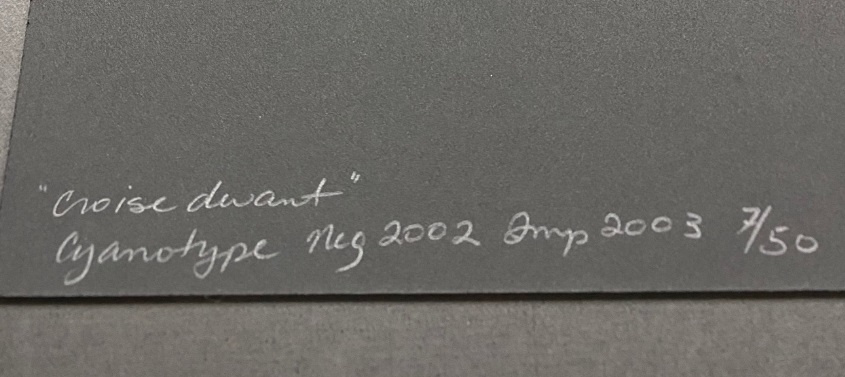 "croise devant"
Cyanotype Neg 2002 Imp 2003 7/50